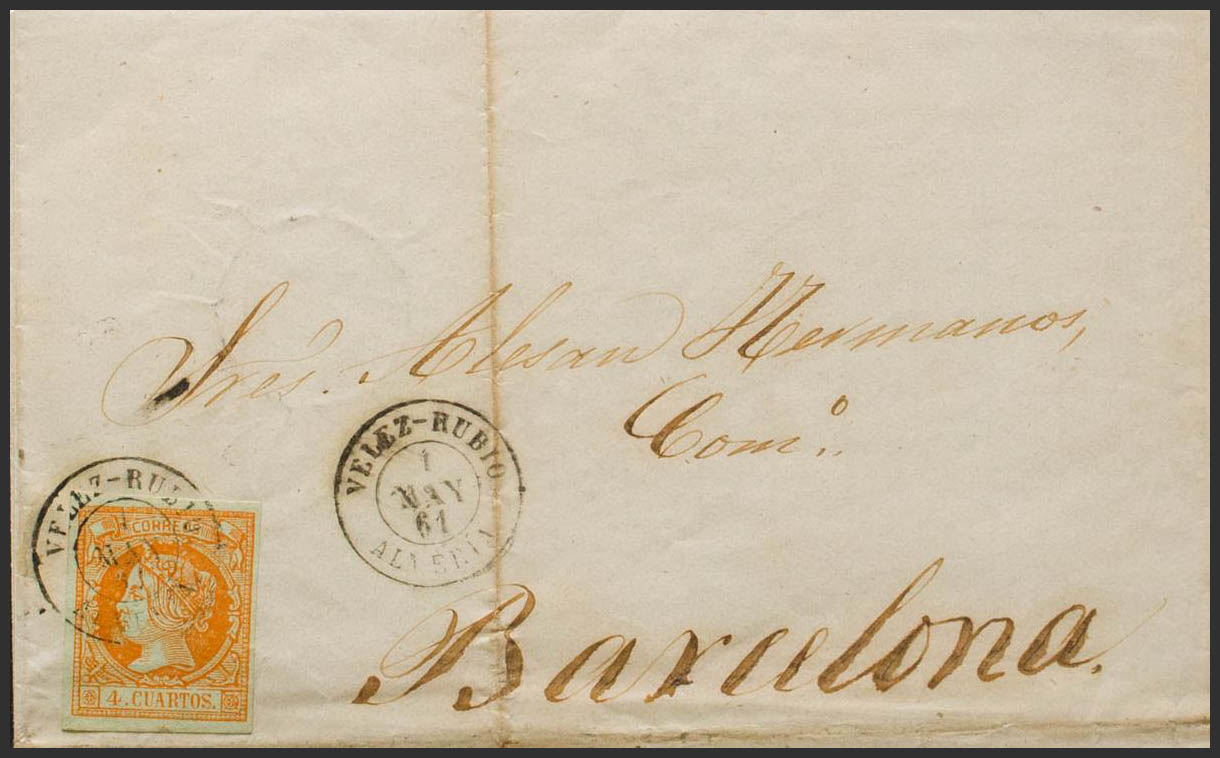 Sres. Alesan Hermanos,
Com.º
VELEZ-RUBIO
1
MAY
61
ALMERIA
VELEZ-RUBIO
1
MAY
CORREOS
4. CUARTOS.
Barcelona.